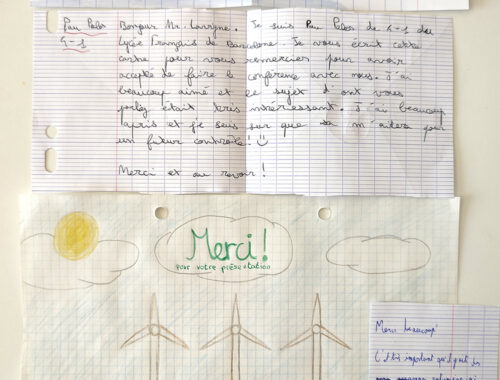 Pau Pales Bonjour Mr. Lavigne. Je suis Pau Pales de 4-1 du
4-1 lycée Français de Barcelone. Je vous écrit cette
carte pour vous remercier pour avoir
accepté de faire la conférence avec nous. J'ai
beaucoup aimé et le sujet d'ont vous
parlez était très intéressant. J'ai beaucoup
apris et je suis sur que sa m'aidera pour
un futur contrôle!
Merci et au revoir!
Merci!
pour votre présentation
Merci beaucoup!
C'était important qu'il